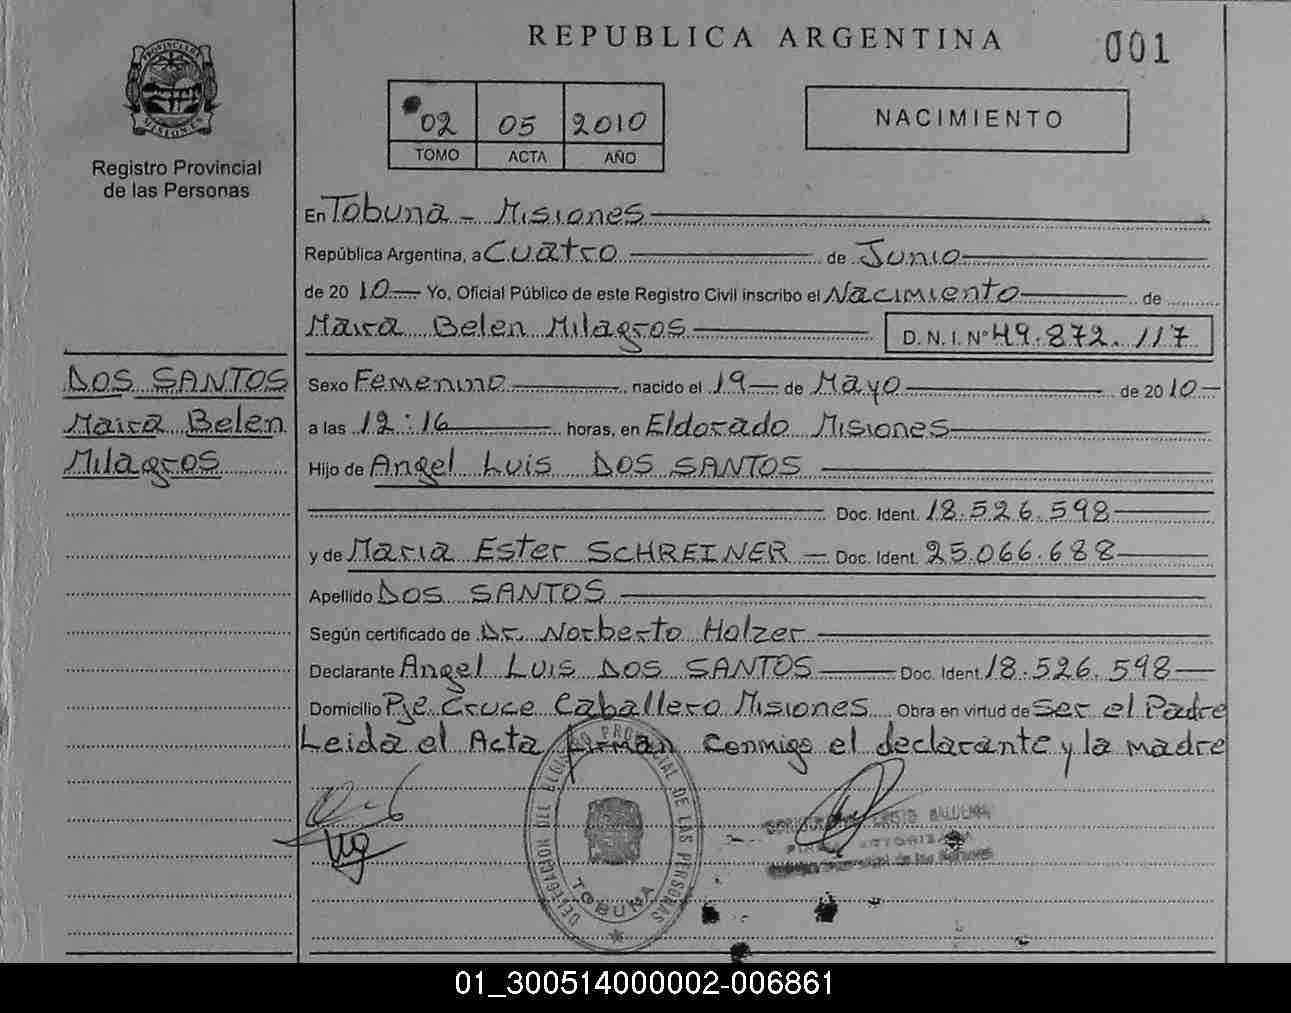 REPUBLICA ARGENTINA
001
PROVINCIA DE MISIONES
Registro Provincial
de las Personas
02 05 2010
TOMO ACTA AÑO
NACIMIENTO
En Tobuna - Misiones
República Argentina, a Cuatro de Junio
de 2010 Yo, Oficial Público de este Registro Civil inscribo el Nacimiento de
Maira Belen Milagros D. N. I. Nº 49.872.117
DOS SANTOS
Maira Belen
Milagros
Sexo Femenino nacido el 19 de Mayo de 2010
a las 12:16 horas, en Eldorado Misiones
Hijo de Angel Luis DOS SANTOS
Doc. Ident. 18.526.598
y de Maria Ester SCHREINER Doc. Ident. 25.066.688
Apellido DOS SANTOS
Según certificado de Dr. Norberto Holzer
Declarante Angel Luis DOS SANTOS Doc. Ident. 18.526.598
Domicilio Pje Cruce Caballero Misiones Obra en virtud de Ser el Padre
Leida el Acta firman conmigo el declarante y la madre
DELEGACION DEL REGISTRO PROVINCIAL DE LAS PERSONAS
TOBUNA
01_300514000002-006861